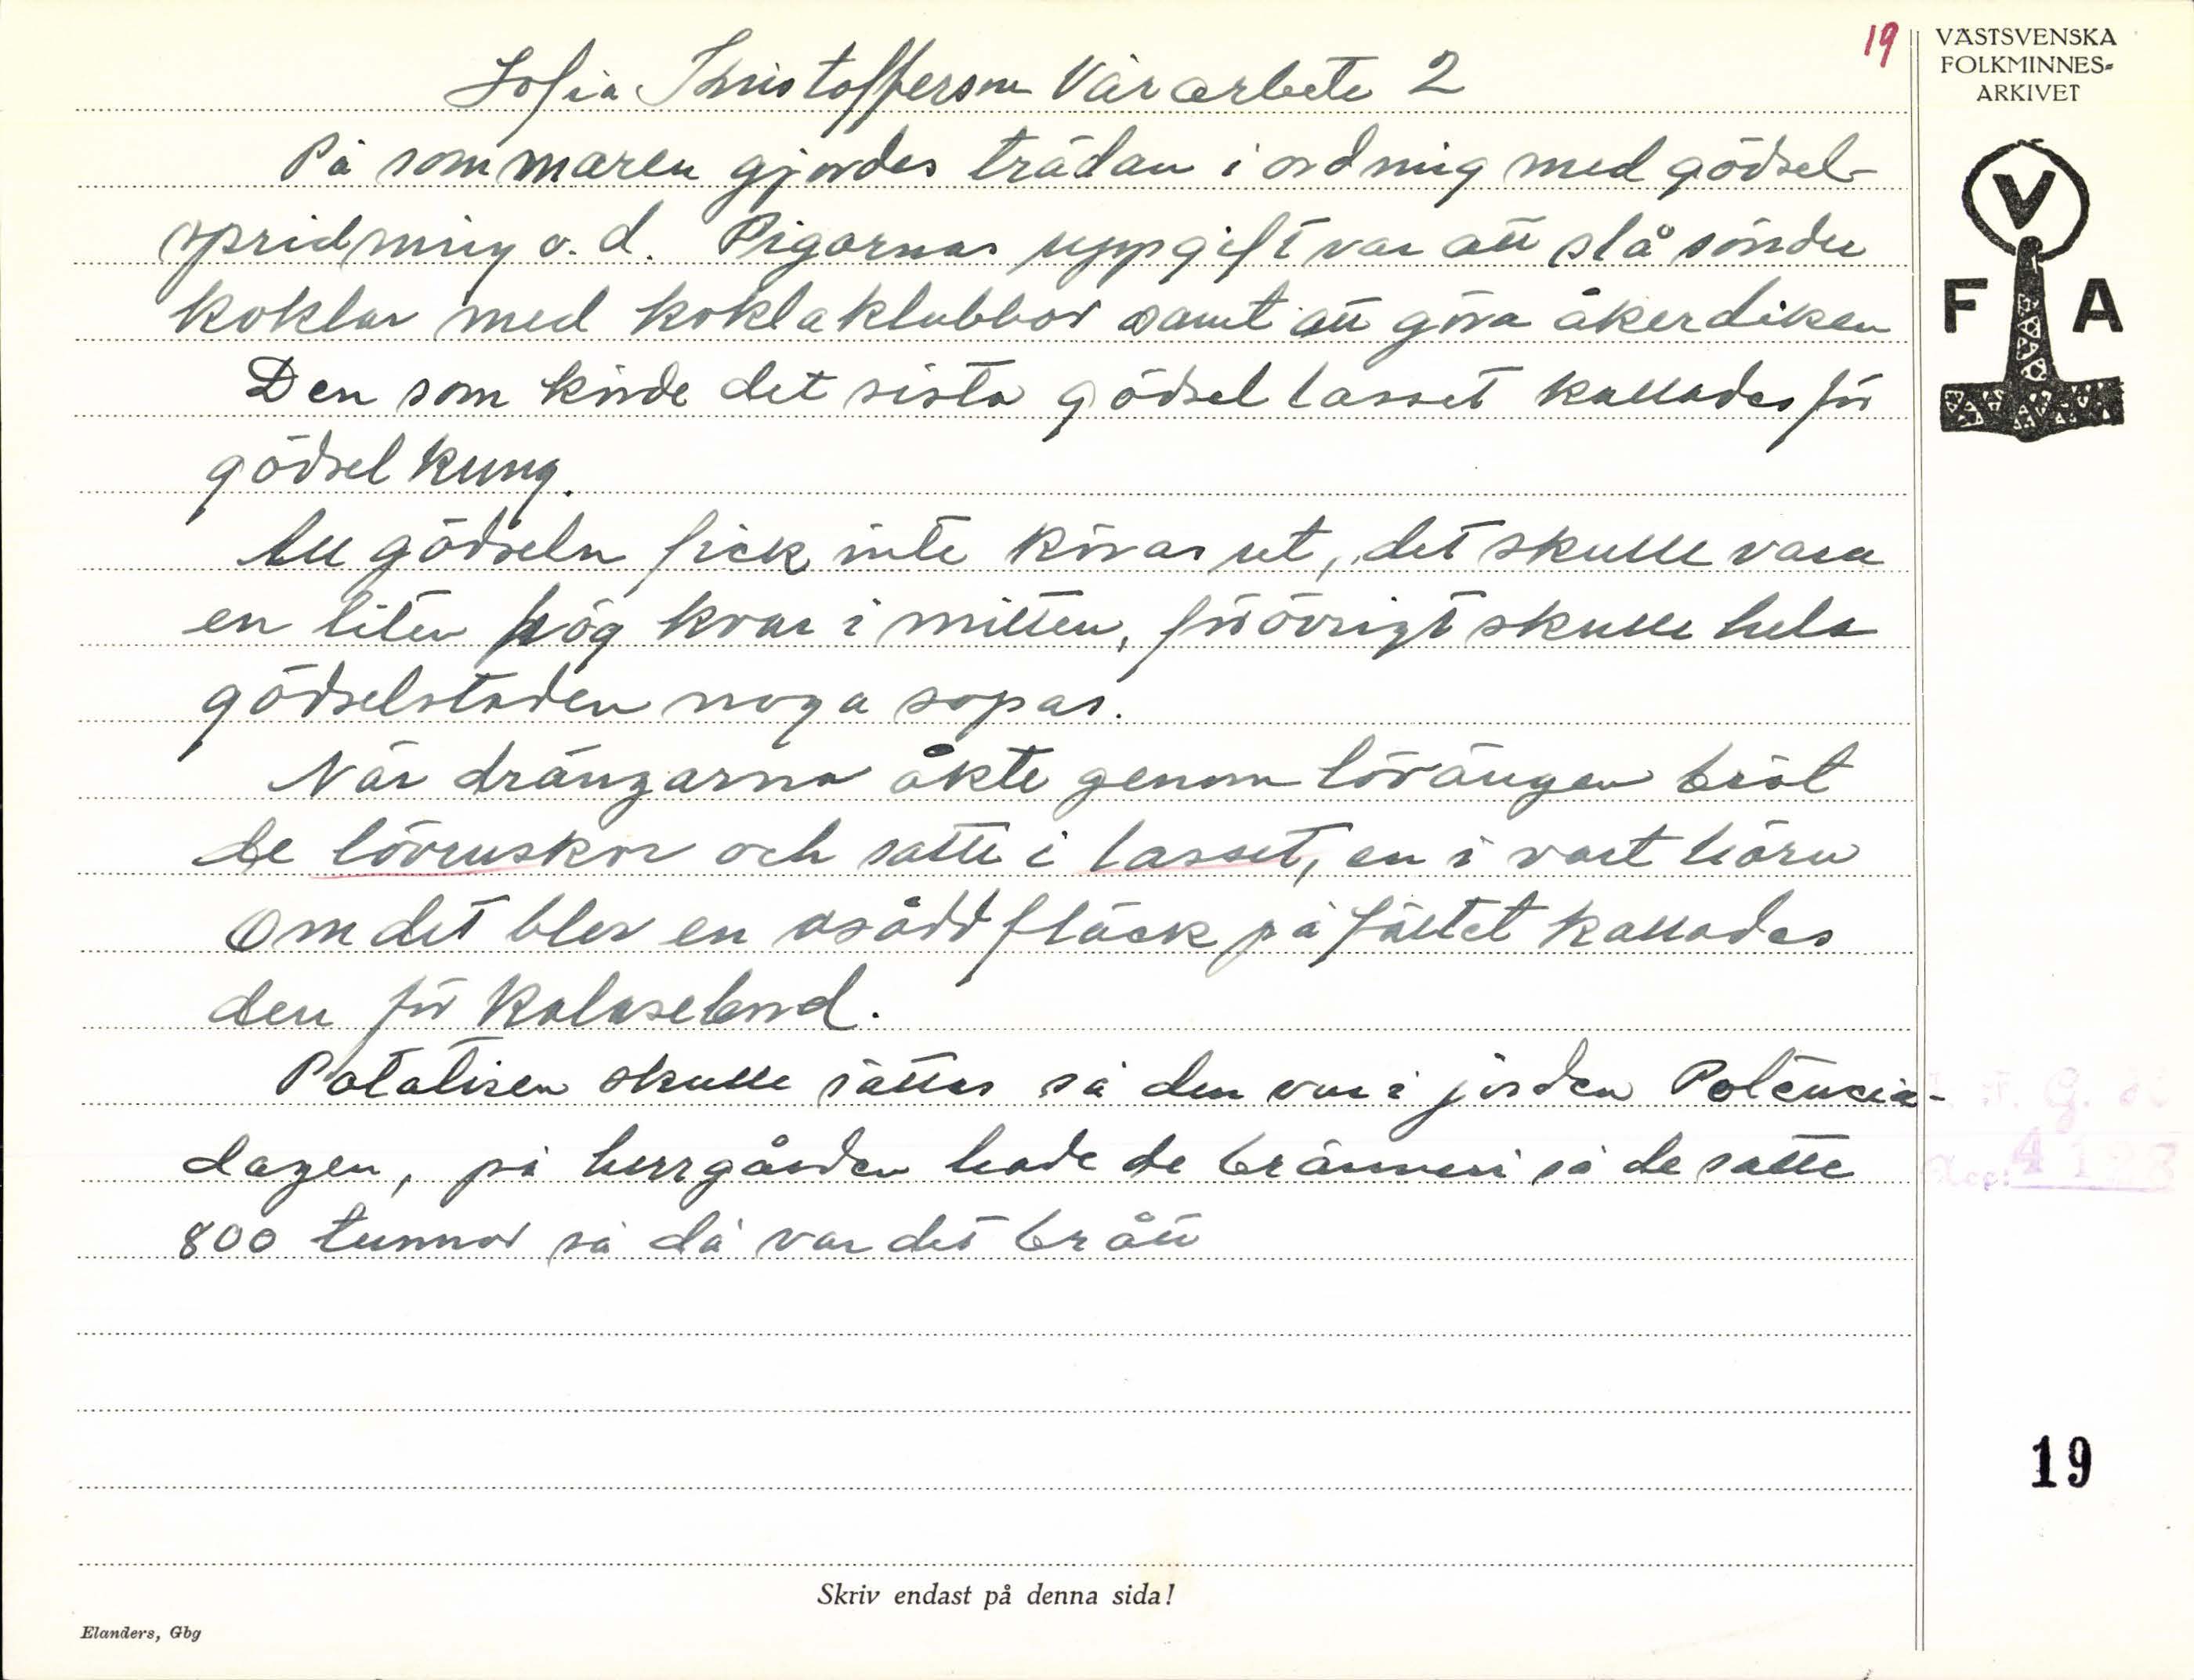 19
VÄSTSVENSKA
FOLKMINNES-
ARKIVET
V
F A
Sofia Kristofferson Vårarbete 2
På sommaren gjordes trädan i ordning med gödsel-
spridning o. d. Pigornas uppgift var att slå sönder
koklar med koklaklubbor samt att göra åkerdiken
Den som körde det sista gödsellasset kallades för
gödselkung.
All gödseln fick inte köras ut, det skulle vara
en liten hög kvar i mitten, förövrigt skulle hela
gödselstaden noga sopas.
När drängarna åkte genom lövängen bröt
de lövruskor och satte i lasset, en i vart hörn
Om det blev en osådd fläck på fältet kallades
den för kalasebord.
Potatisen skulle sättas så den var i jorden Potensia-
dagen, på herrgården hade de bränneri så de satte
800 tunnor så då var det brått
Acc: 4128
19
Skriv endast på denna sida!
Elanders, Gbg